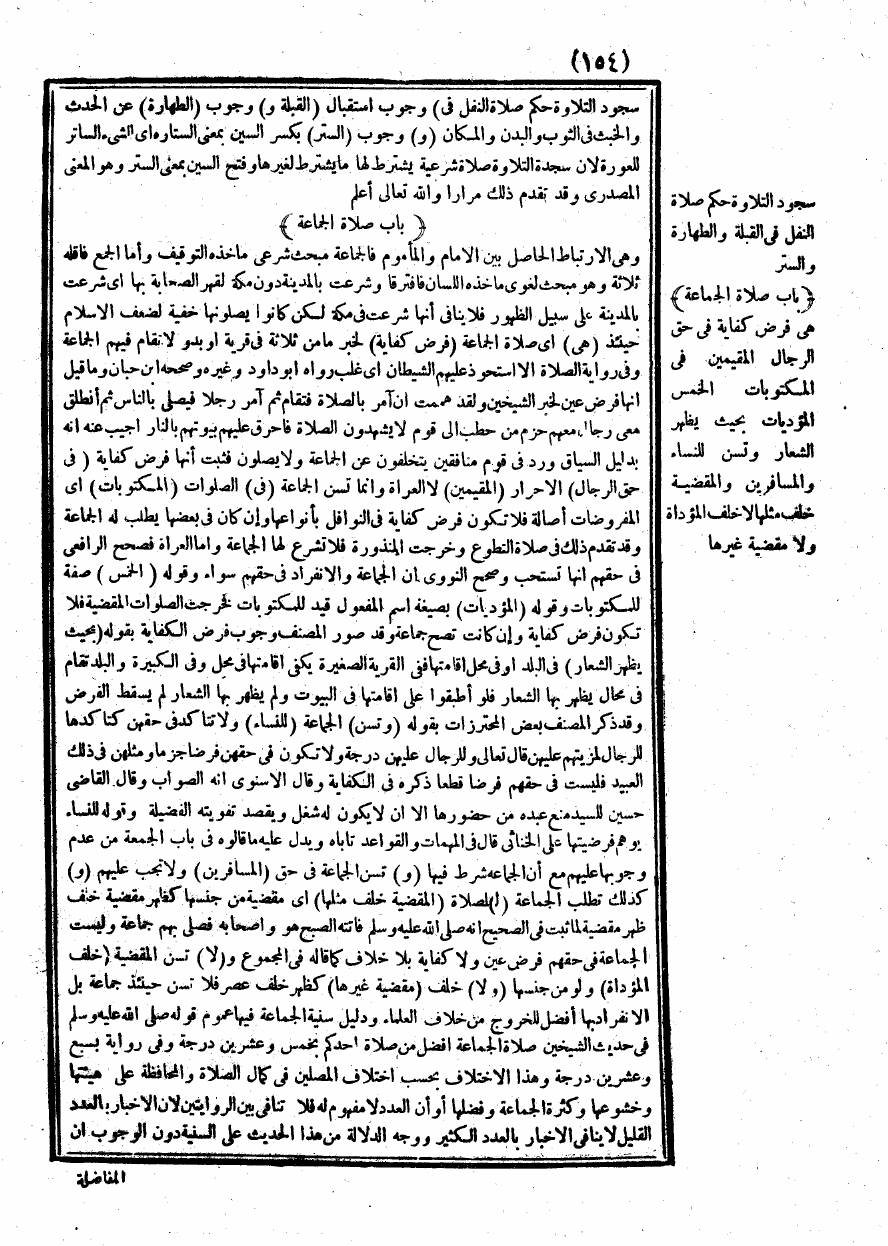 (١٥٤)
سجود التلاوة حكم صلاة النفل فى) وجوب استقبال (القبلة و) وجوب (الطهارة) عن الحدث
والخبث فى الثوب والبدن والمكان (و) وجوب (الستر) بكسر السين بمعنى الستارة اى الشىء الساتر
للعورة لان سجدة التلاوة صلاة شرعية يشترط لها ما يشترط لغيرها وفتح السين بمعنى الستر وهو المعنى
المصدرى وقد تقدم ذلك مرارا والله تعالى أعلم
﴿ باب صلاة الجماعة ﴾
وهى الارتباط الحاصل بين الامام والمأموم فالجماعة مبحث شرعى ماخذه التوقيف وأما الجمع فاقله
ثلاثة وهو مبحث لغوى ماخذه اللسان فافترقا وشرعت بالمدينة دون مكة لقهر الصحابة بها اى شرعت
بالمدينة على سبيل الظهور فلا ينافى أنها شرعت فى مكة لكن كانوا يصلونها خفية لضعف الاسلام
حينئذ (هى) اى صلاة الجماعة (فرض كفاية) لخبر ما من ثلاثة فى قرية او بدو لا تقام فيهم الجماعة
وفى رواية الصلاة الا استحوذ عليهم الشيطان اى غلب رواه ابو داود وغيره وصححه ابن حبان وما قيل
انها فرض عين لخبر الشيخين ولقد هممت ان آمر بالصلاة فتقام ثم آمر رجلا فيصلى بالناس ثم أنطلق
معى رجال معهم حزم من حطب الى قوم لا يشهدون الصلاة فاحرق عليهم بيوتهم بالنار اجيب عنه انه
بدليل السياق ورد فى قوم منافقين يتخلفون عن الجماعة ولا يصلون فثبت أنها فرض كفاية ( فى
حق الرجال) الاحرار (المقيمين) لا العراة وانما تسن الجماعة (فى) الصلوات (المكتوبات) اى
المفروضات أصالة فلا تكون فرض كفاية فى النوافل بأنواعها وإن كان فى بعضها يطلب له الجماعة
وقد تقدم ذلك فى صلاة التطوع وخرجت المنذورة فلا تشرع لها الجماعة واما العراة فصحح الرافعى
فى حقهم انها تستحب وصحح النووى ان الجماعة والانفراد فى حقهم سواء وقوله ( الخمس ) صفة
للمكتوبات وقوله (المؤديات) بصيغة اسم المفعول قيد للمكتوبات فخرجت الصلوات المقضية فلا
تكون فرض كفاية وإن كانت تصح جماعة وقد صور المصنف وجوب فرض الكفاية بقوله (بحيث
يظهر الشعار) فى البلد او فى محل اقامتها ففى القرية الصغيرة يكفى اقامتها فى محل وفى الكبيرة والبلد تقام
فى محال يظهر بها الشعار فلو أطبقوا على اقامتها فى البيوت ولم يظهر بها الشعار لم يسقط الفرض
وقد ذكر المصنف بعض المحترزات بقوله (وتسن) الجماعة (للنساء) ولا تتاكد فى حقهن كتاكدها
للرجال لمزيتهم عليهن قال تعالى وللرجال عليهن درجة ولا تكون فى حقهن فرضا جزما ومثلهن فى ذلك
العبيد فليست فى حقهم فرضا قطعا ذكره فى الكفاية وقال الاسنوى انه الصواب وقال القاضى
حسين للسيد منع عبده من حضورها الا ان لا يكون له شغل ويقصد تفويته الفضيلة وقوله للنساء
يوهم فرضيتها على الخناثى قال فى المهمات والقواعد تاباه ويدل عليه ما قالوه فى باب الجمعة من عدم
وجوبها عليهم مع أن الجماعة شرط فيها (و) تسن الجماعة فى حق (المسافرين) ولا تجب عليهم (و)
كذلك تطلب الجماعة (ل) لصلاة (المقضية خلف مثلها) اى مقضية من جنسها كظهر مقضية خلف
ظهر مقضية لما ثبت فى الصحيح انه صلى الله عليه وسلم فاتته الصبح هو واصحابه فصلى بهم جماعة وليست
الجماعة فى حقهم فرض عين ولا كفاية بلا خلاف كما قاله فى المجموع و(لا) تسن المقضية (خلف
المؤداة) ولو من جنسها (ولا) خلف (مقضية غيرها) كظهر خلف عصر فلا تسن حينئذ جماعة بل
الانفراد بها أفضل للخروج من خلاف العلماء ودليل سنية الجماعة فيها عموم قوله صلى الله عليه وسلم
فى حديث الشيخين صلاة الجماعة افضل من صلاة احدكم بخمس وعشرين درجة وفى رواية بسبع
وعشرين درجة وهذا الاختلاف بحسب اختلاف المصلين فى كمال الصلاة والمحافظة على هيئتها
وخشوعها وكثرة الجماعة وفضلها أو أن العدد لا مفهوم له فلا تنافى بين الروايتين لان الاخبار بالعدد
القليل لا ينافى الاخبار بالعدد الكثير ووجه الدلالة من هذا الحديث على السنية دون الوجوب ان
المفاضلة
سجود التلاوة حكم صلاة
النفل فى القبلة والطهارة
والستر
﴿باب صلاة الجماعة﴾
هى فرض كفاية فى حق
الرجال المقيمين فى
المكتوبات الخمس
المؤديات بحيث يظهر
الشعار وتسن للنساء
والمسافرين والمقضية
خلف مثلها لا خلف المؤداة
ولا مقضية غيرها